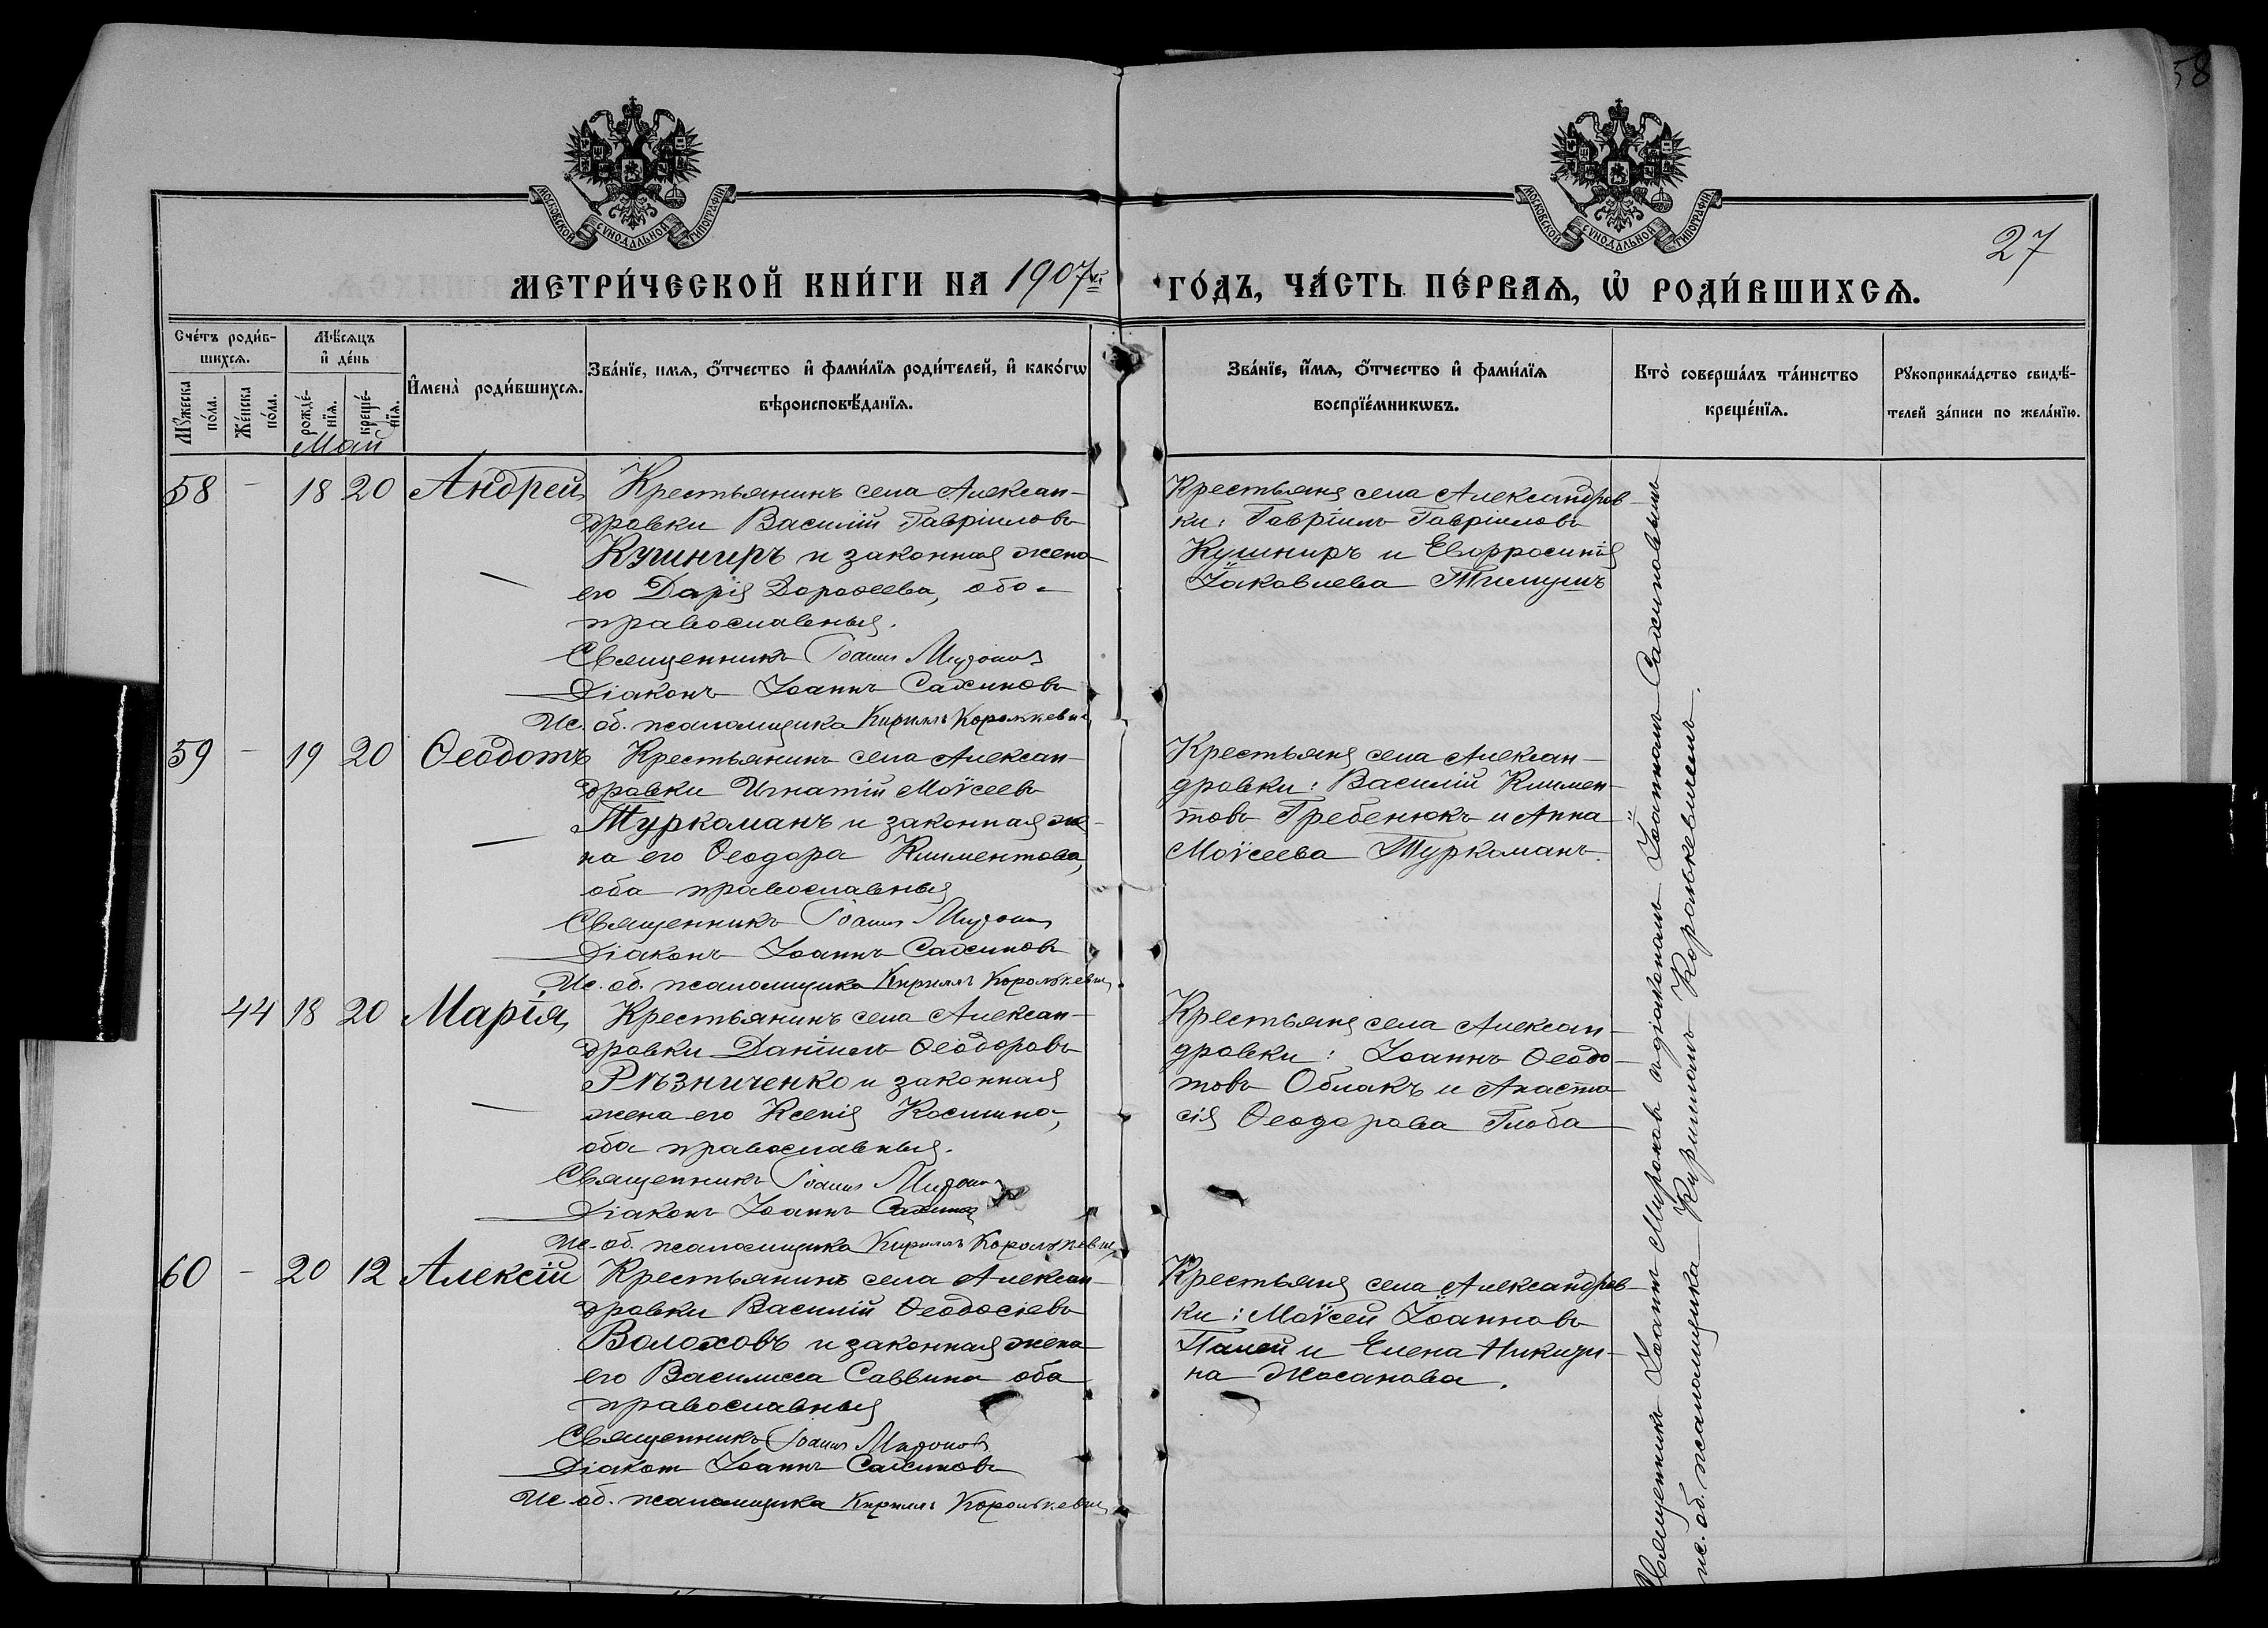 58
МОСКОВСКОЙ СѴНОДАЛЬНОЙ ТИПОГРАФІИ
МОСКОВСКОЙ СѴНОДАЛЬНОЙ ТИПОГРАФІИ
27
МЕТРИ́ЧЕСКОЙ КНИ́ГИ НА 1907й
ГО́ДЪ, ЧА́СТЬ ПЕ́РВАѦ, Ѡ҆ РОДИ́ВШИХСѦ.
Сче́тъ роди́в-
шихсѧ.
Мꙋ́жеска по́ла.
Же́нска по́ла.
Мѣ́сѧцъ
и҆ де́нь
рожде́-
нїѧ.
креще́-
нїѧ.
И҆мена̀ роди́вшихсѧ.
Зва́нїе, имѧ, ѻ҆́тчество и҆ фами́лїѧ роди́телей, и҆ како́гѡ
вѣроисповѣ́данїѧ.
Зва́нїе, и҆́мѧ, ѻ҆́тчество и҆ фами́лїѧ
воспрїе́мникѡвъ.
Кто̀ соверша́лъ та́инство
креще́нїѧ.
Рꙋкоприкла́дство свидѣ́-
телей за́писи по жела́нїю.
Май
58 - 18 20 Андрей
Крестьянинъ села Алексан-
дровки Василій Гавріиловъ
Кушниръ и законная жена
его Дарія Дороѳеева, оба
православныя.
Священникъ Іоаннъ Мироновъ
Діаконъ Іоаннъ Сахиновъ
Ис. об. псаломщика Кириллъ Королькевич
Крестьяне села Александров-
ки: Гавріилъ Гавріиловъ
Кушниръ и Евфросинія
Іаковлева Тимушъ
59 - 19 20 Ѳеодотъ
Крестьянинъ села Алексан-
дровки Игнатій Моѵсеевъ
Туркоманъ и законная же-
на его Ѳеодора Климентова,
оба православныя
Священникъ Іоаннъ Миронов
Діаконъ Іоаннъ Сахиновъ
Ис. об. псаломщика Кириллъ Королькевич
Крестьяне села Алексан-
дровки: Василій Климен-
товъ Гребенюкъ и Анна
Моѵсеева Туркоманъ.
44 18 20 Марія
Крестьянинъ села Алексан-
дровки Даніилъ Ѳеодоровъ
Рѣзниченко и законная
жена его Ксенія Космина,
оба православныя.
Священникъ Іоаннъ Миронов
Діаконъ Іоаннъ Сахинов
Ис. об. псаломщика Кириллъ Королькевич
Крестьяне села Алексан-
дровки: Іоаннъ Ѳеодо-
товъ Облакъ и Анаста-
сія Ѳеодорова Глоба
60 - 20 12 Алексій
Крестьянинъ села Алексан-
дровки Василій Ѳеодосіевъ
Волоховъ и законная жена
его Василисса Саввина оба
православныя
Священникъ Іоаннъ Миронов
Діаконъ Іоаннъ Сахиновъ
Ис. об. псаломщика Кириллъ Королькевич
Крестьяне села Александров-
ки: Моѵсей Іоанновъ
Палей и Елена Никити-
на Жосанова.
Священникъ Іоаннъ Мироновъ съ діакономъ Іоанномъ Сахиновымъ
и ис. об. псаломщика Кирилломъ Королькевичемъ.